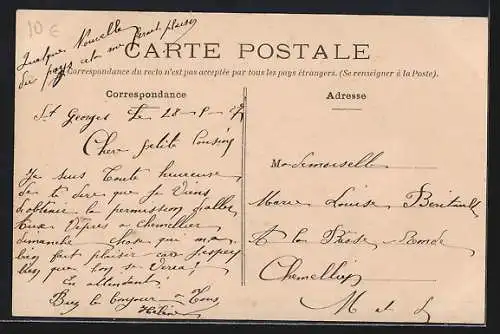 10 €
Quelque Nouvelle
du pays et me ferait plaisir
CARTE POSTALE
Correspondance du recto n'est pas acceptée par tous les pays étrangers. (Se renseigner à la Poste).
Correspondance
Adresse
St Georges le 28
Cher petite Cousine
Je suis toute heureuse
de te dire que je viens
d'obtenir la permission d'aller
aux Vêpres à Chemellier
dimanche chose qui me
bien fait plaisir car j'espère
bien que l'on se verra!
En attendant
Bien le bonjour à Tous
Mademoiselle
Marie Louise
A la
Chemellier
M et L